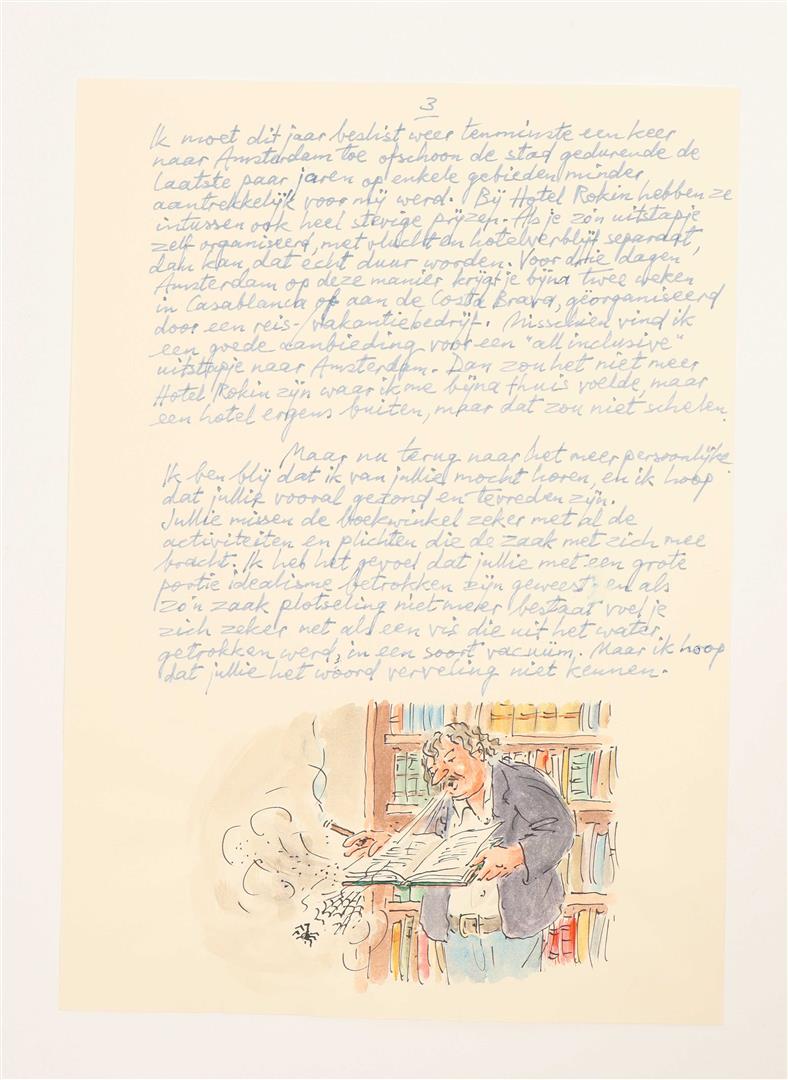 3
Ik moet dit jaar beslist weer tenminste een keer
naar Amsterdam toe ofschoon de stad gedurende de
laatste paar jaren op enkele gebieden minder
aantrekkelijk voor mij werd. Bij Hotel Rokin hebben ze
intussen ook heel stevige prijzen. Als je zo'n uitstapje
zelf organiseerd, met vlucht en hotelverblijf separaat,
dan kan dat echt duur worden. Voor drie dagen,
Amsterdam op deze manier krijgt je bijna twee weken
in Casablanca of aan de Costa Brava, georganiseerd
door een reis-/vakantiebedrijf. Misschien vind ik
een goede aanbieding voor een "all inclusive"
uitstapje naar Amsterdam. Dan zou het niet meer
Hotel Rokin zijn waar ik me bijna thuis voelde, maar
een hotel ergens buiten, maar dat zou niet schelen.
Maar nu terug naar het meer persoonlijke.
Ik ben blij dat ik van jullie mocht horen, en ik hoop
dat jullie vooral gezond en tevreden zijn.
Jullie missen de boekwinkel zeker met al de
activiteiten en plichten die de zaak met zich mee
bracht. Ik heb het gevoel dat jullie met een grote
portie idealisme betrokken zijn geweest, en als
zo'n zaak plotseling niet meer bestaat voel je
zich zeker net als een vis die uit het water
getrokken werd, in een soort vacuüm. Maar ik hoop
dat jullie het woord verveling niet kennen.